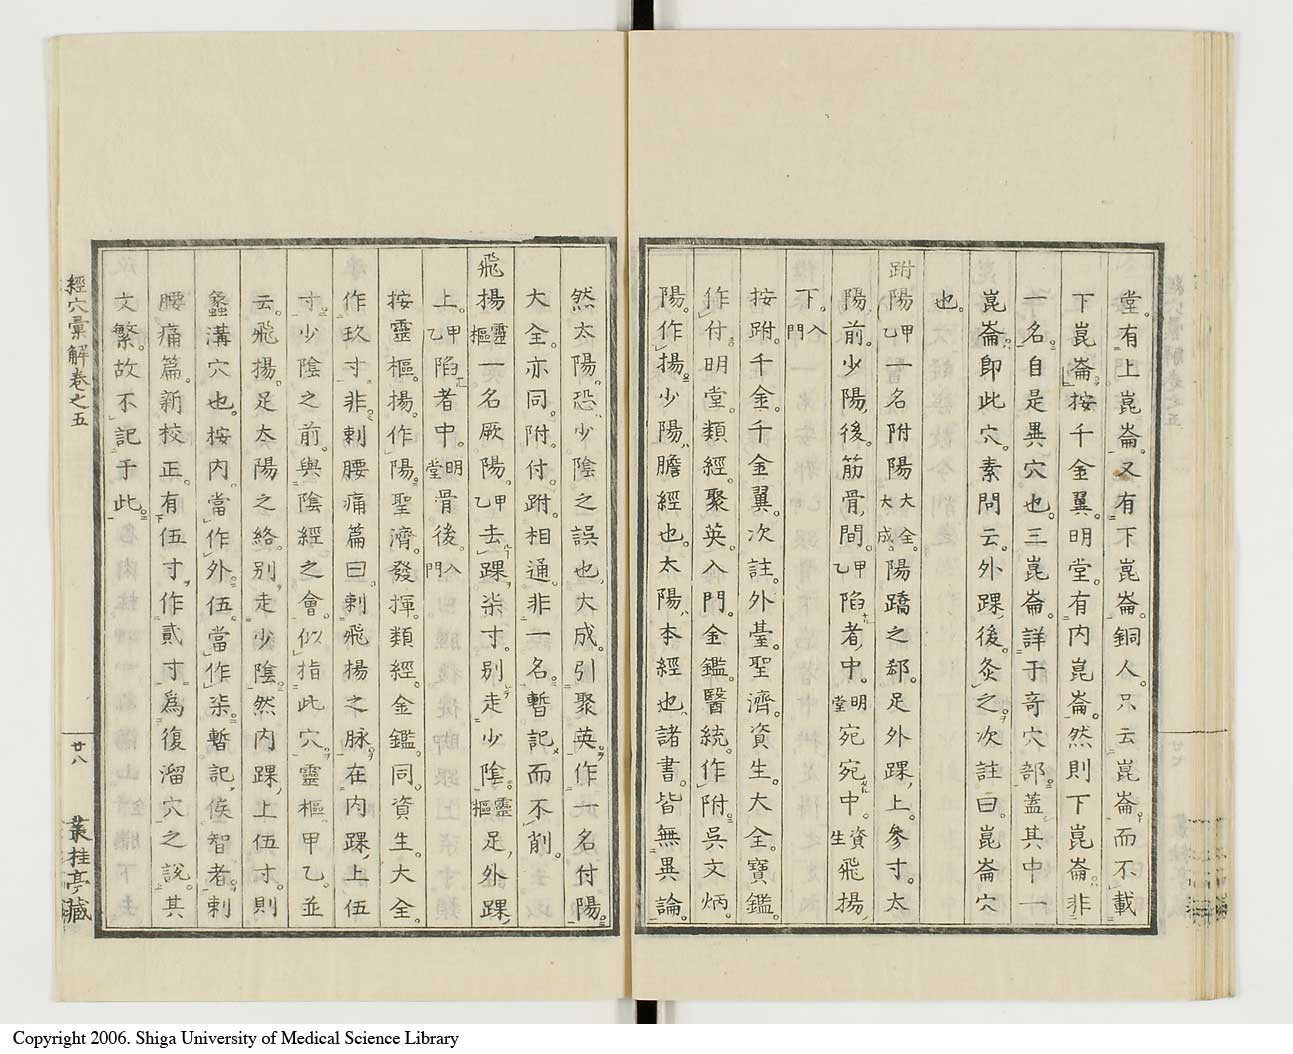 堂。有上崑崙。又有下崑崙。銅人。只云崑崙。而不載
下崑崙。按千金翼。明堂。有内崑崙。然則下崑崙。非
一名。自是異穴也。三崑崙。詳于奇穴部。蓋其中一
崑崙。即此穴。素問云。外踝後。灸之。次註曰。崑崙穴
也。
跗陽甲乙一名附陽大全大成。陽蹻之郄。足外踝上。參寸。太
陽前。少陽後。筋骨間。甲乙陷者中。明堂宛宛中。資生飛揚
下。入門
按跗。千金。千金翼。次註。外臺。聖濟。資生。大全。寶鑑。
作付。明堂。類經。聚英。入門。金鑑。醫統。作附。呉文炳
陽。作揚。少陽。膽經也。太陽。本經也。諸書。皆無異論。
然太陽。恐少陰之誤也。大成。引聚英。作一名付陽。
大全。亦同。附。付。跗。相通。非一名。暫記而不削。
飛揚靈樞一名厥陽。甲乙去踝。柒寸。別走少陰。靈樞足外踝
上。甲乙陷者中。明堂骨後。入門
按靈樞。揚。作陽。聖濟。發揮。類經。金鑑。同。資生。大全。
作玖寸。非。刺腰痛篇曰。刺飛揚之脉。在内踝上伍
寸。少陰之前。與陰經之會。似指此穴。靈樞甲乙。並
云。飛揚。足太陽之絡。別走少陰。然内踝上伍寸。則
蠡溝穴也。按内。當作外。伍。當作柒。暫記。俟智者。刺
腰痛篇。新校正。有伍寸。作貳寸。爲復溜穴之說。其
文繁。故不記于此。
經穴彙解卷之五
廿八
叢桂亭藏
Copyright 2006. Shiga University of Medical Science Library